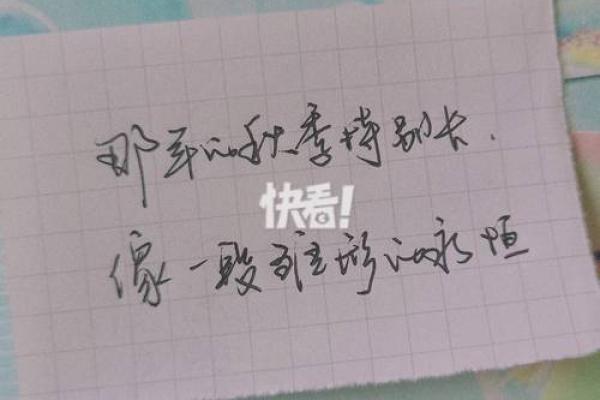 那年的秋季特别长.
快看!
像一段雏形的永恒